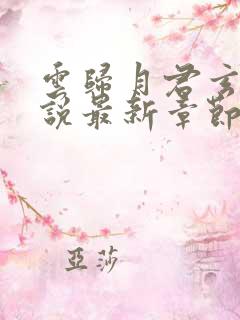 雲歸月君玄
說最新章節
亞莎